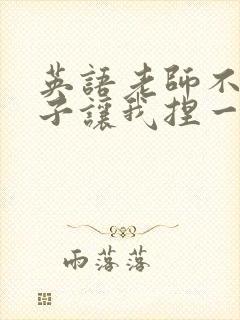 英語老師不
子讓我捏一
雨落落